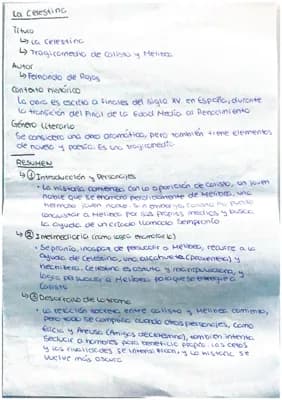 La Celestina
Título
↳ La Celestina
↳ Tragicomedia de Calisto y Melibea
Autor
↳ Fernando de Rojas
Contexto histórico
La obra es escrita a finales del siglo XV en España, durante
la transición del final de la Edad Media al Renacimiento
Género literario
Se considera una obra dramática, pero también tiene elementos
de novela y poesía. Es una tragicomedia
RESUMEN
↳ ① Introducción y Personajes
• La historia comienza con la aparición de Calisto, un joven
noble que se enamora perdidamente de Melibea, una
hermosa joven noble. Sin embargo, Calisto no puede
conquistar a Melibea por sus propios medios y busca
la ayuda de un criado llamado Sempronio
↳ ② Intermediaria (como logra enamorarla)
• Sempronio, incapaz de persuadir a Melibea, recurre a la
ayuda de Celestina, una alcahueta (proxeneta) y
hechicera. Celestina es astuta y manipuladora, y
logra persuadir a Melibea para que se entregue a
Calisto
↳ ③ Desarrollo de la trama
• La relación secreta entre Calisto y Melibea comienza,
pero todo se complica cuando otros personajes, como
Elicia y Areusa (Amigas de Celestina), también intentan
seducir a hombres para beneficio propio. Los celos
y las rivalidades se intensifican, y la historia se
vuelve más oscura